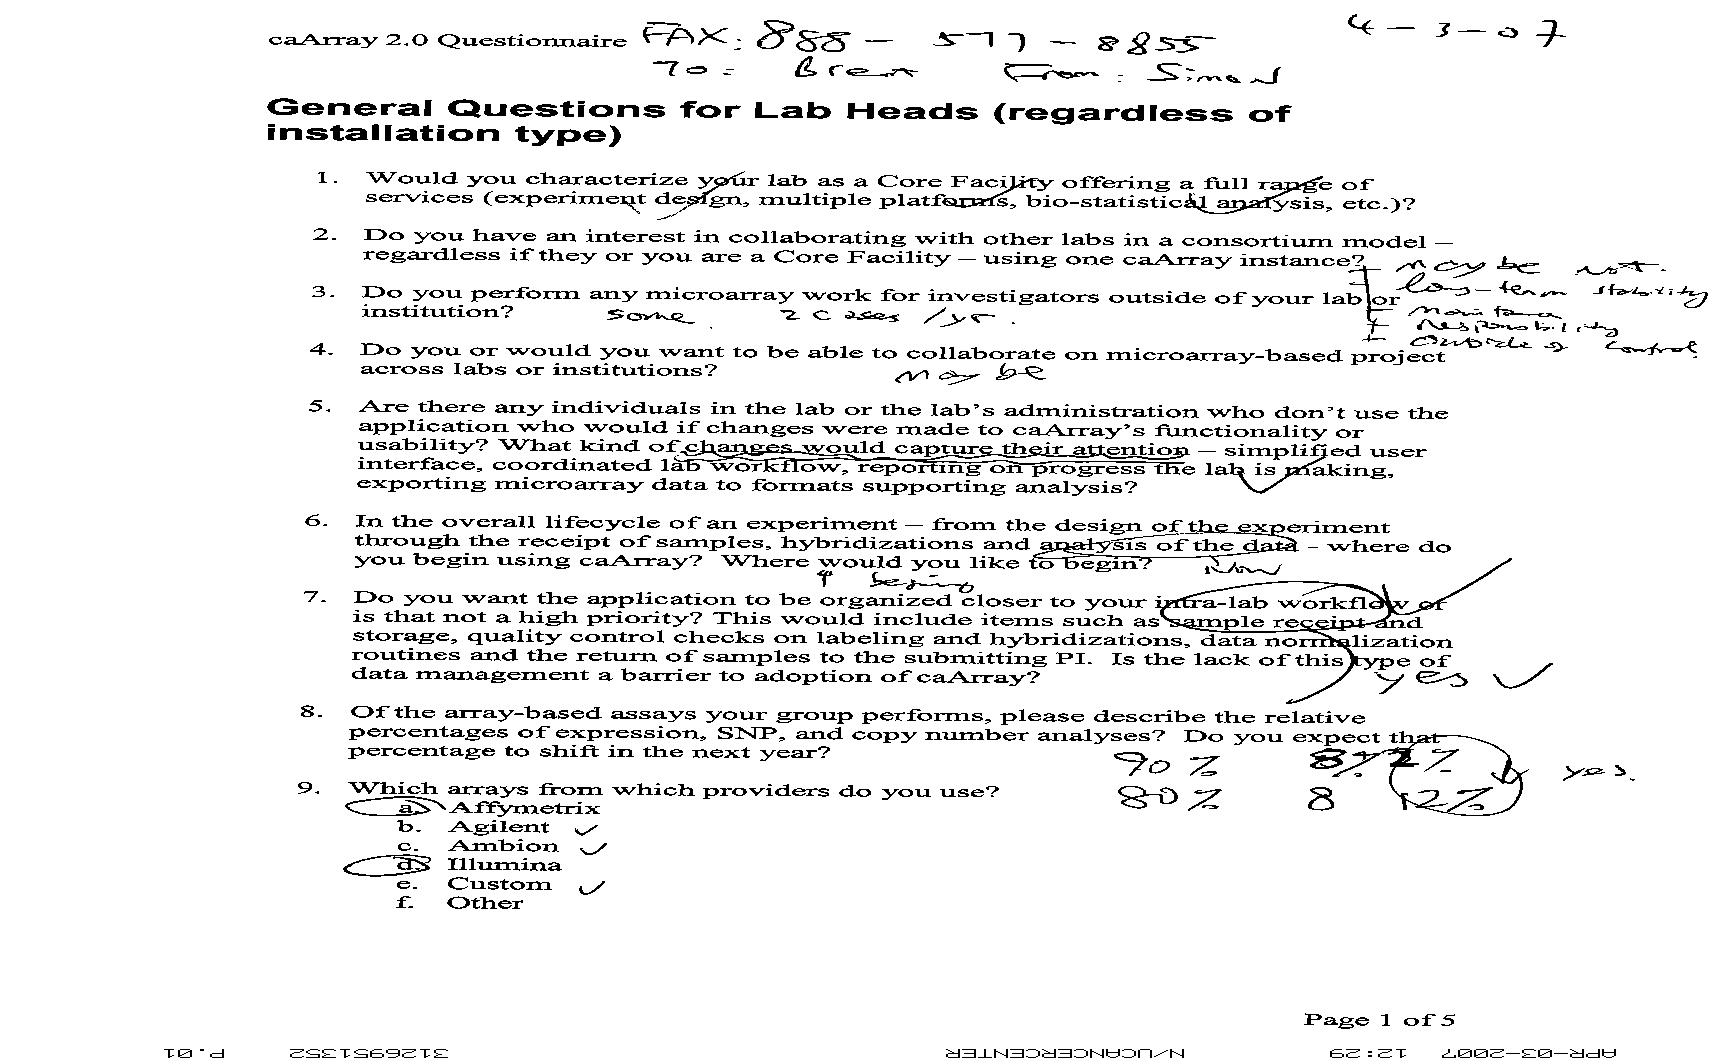 caArray 2.0 Questionnaire FAX: 888 - 577 - 8855 4-3-07
To: Brent From: Simon
General Questions for Lab Heads (regardless of
installation type)
1. Would you characterize your lab as a Core Facility offering a full range of
services (experiment design, multiple platforms, bio-statistical analysis, etc.)?
2. Do you have an interest in collaborating with other labs in a consortium model –
regardless if they or you are a Core Facility – using one caArray instance?
may be not.
long-term stability
3. Do you perform any microarray work for investigators outside of your lab or
institution? some 2 cases /yr.
responsibility
outside of control
4. Do you or would you want to be able to collaborate on microarray-based project
across labs or institutions? may be
5. Are there any individuals in the lab or the lab's administration who don't use the
application who would if changes were made to caArray's functionality or
usability? What kind of changes would capture their attention – simplified user
interface, coordinated lab workflow, reporting on progress the lab is making,
exporting microarray data to formats supporting analysis?
6. In the overall lifecycle of an experiment – from the design of the experiment
through the receipt of samples, hybridizations and analysis of the data - where do
you begin using caArray? Where would you like to begin? Now
7. Do you want the application to be organized closer to your intra-lab workflow or
is that not a high priority? This would include items such as sample receipt and
storage, quality control checks on labeling and hybridizations, data normalization
routines and the return of samples to the submitting PI. Is the lack of this type of
data management a barrier to adoption of caArray? yes
8. Of the array-based assays your group performs, please describe the relative
percentages of expression, SNP, and copy number analyses? Do you expect that
percentage to shift in the next year? 90% 8% 2% yes.
80% 8 12%
9. Which arrays from which providers do you use?
a. Affymetrix
b. Agilent ✓
c. Ambion ✓
d. Illumina
e. Custom ✓
f. Other
Page 1 of 5
APR-03-2007 12:29 N/UCANCERCENTER 3126951352 P.01